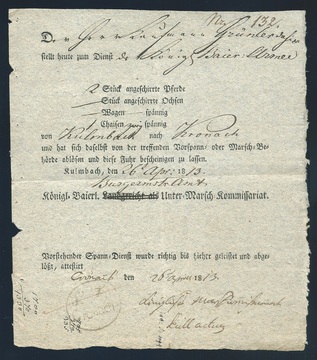 No. 132.
Der Herr Kaufmann Grünler dahier
stellt heute zum Dienst der Königl Baier Armee
2 Stück angeschirrte Pferde
Stück angeschirrte Ochsen
Wagen spännig
1 Chaisen spännig
von Kulmbach nach Kronach
und hat sich daselbst von der treffenden Vorspann- oder Marsch-Be-
hörde ablösen und diese Fuhr bescheinigen zu lassen.
Kulmbach, den 26 Apr. 1813
Burgermstr Amt.
Königl. Baierl. Landgericht als Unter-Marsch Kommissariat.
Vorstehender Spann-Dienst wurde richtig bis hieher geleistet und abge-
lößt, attestirt
Cronach den 26 April 1813.